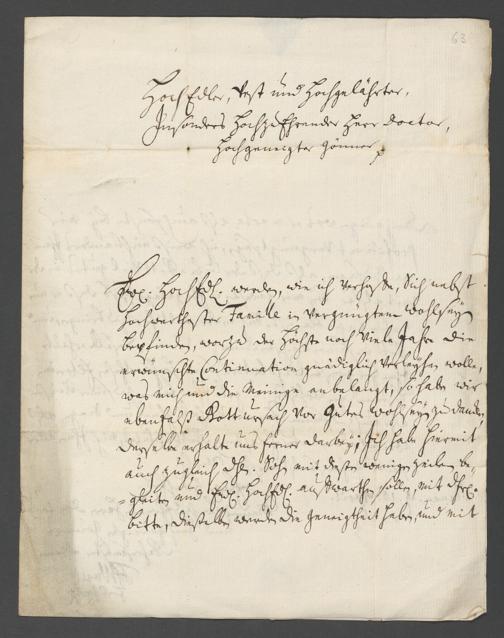 63
HochEdler, Vest und Hochgelährter,
Insonders HochzuEhrender Herr Doctor,
Hochgeneigter Gönner
Ew. HochEdl. werden, wie ich verhoffe, Sich nebst
Hochwerthester Famille in vergnügtem wohlseyn
befinden, worzu der Höchste noch Viele Jahre die
erwünschte Continuation gnädiglich verleyhen wolle,
was mich und die Meinige anbelangt, so habe wir
ebenfalß Gott Vor Gutes wohlseyn zu dancken,
derselbe erhalte uns ferner darbey; Ich habe hiermit
auch zugleich Sohn mit diesen wenigen Zeilen be-
gleiten und Ew. HochEdl. auffwarthen sollen, mit
bitte, dieselben werden die geneigtheit haben, und mit